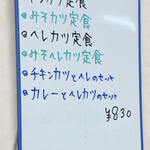 カツ定食
みそカツ定食
ヘレカツ定食
みそヘレカツ定食
チキンカツとヘレのセット
カレーとヘレカツのセット
¥830